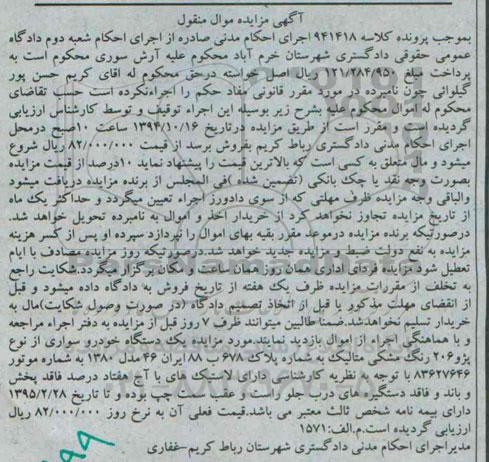 آگهی مزایده موال منقول
بموجب پرونده کلاسه ۹۴۱۴۱۸ اجرای احکام مدنی صادره از اجرای احکام شعبه دوم دادگاه
عمومی حقوقی دادگستری شهرستان خرم آباد محکوم علیه آرش سوری محکوم است به
پرداخت مبلغ ۱۲۱/۲۸۴/۹۵۰ ریال اصل خواسته درحق محکوم له اقای کریم حسن پور
گیلوائی چون نامبرده در مورد مقرر قانونی مفاد حکم را اجراءنکرده است حسب تقاضای
محکوم له اموال محکوم علیه بشرح زیر بوسیله این اجراء توقیف و توسط کارشناس ارزیابی
گردیده است و مقرر است از طریق مزایده درتاریخ ۱۳۹۴/۱۰/۱۶ ساعت ۱۰صبح درمحل
اجرای احکام مدنی دادگستری رباط کریم بفروش برسد از قیمت ۸۲/۰۰۰/۰۰۰ ریال شروع
میشود و مال متعلق به کسی است که بالاترین قیمت را پیشنهاد نماید ۱۰درصد از قیمت مزایده
بصورت وجه نقد یا چک بانکی (تضمین شده )فی المجلس از برنده مزایده دریافت میشود
والباقی وجه مزایده ظرف مهلتی که از سوی دادورز اجراء تعیین میگردد و حداکثر یک ماه
از تاریخ مزایده تجاوز نخواهد کرد از خریدار اخذ و اموال به نامبرده تحویل خواهد شد.
درصورتیکه برنده مزایده درموعد مقرر بقیه بهای اموال را نپردازد سپرده او پس از کسر هزینه
مزایده به نفع دولت ضبط و مزایده تجدید خواهد شد.درصورتیکه روز مزایده مصادف با ایام
تعطیل شود مزایده فردای اداری همان روز همان ساعت و مکان برگزار میگردد.شکایت راجع
به تخلف از مقررات مزایده ظرف یک هفته از تاریخ فروش به دادگاه داده میشود و قبل
از انقضای مهلت مذکور یا قبل از اتخاذ تصمیم دادگاه (در صورت وصول شکایت)مال به
خریدار تسلیم نخواهدشد.ضمنا طالبین میتوانند ظرف ۷ روز قبل از مزایده به دفتر اجراء مراجعه
و با هماهنگی اجراء از اموال بازدید نمایند.مورد مزایده یک دستگاه خودرو سواری از نوع
پژو۲۰۶ رنگ مشکی متالیک به شماره پلاک ۶۷۸ ب ۸۸ ایران ۴۶ مدل ۱۳۸۰ به شماره موتور
۸۳۶۲۷۶۴۶ با توجه به نظریه کارشناسی دارای لاستیک های با آج هفتاد درصد فاقد پخش
و باند و فاقد دستگیره های درب جلو راست و عقب سمت چپ بوده و تا تاریخ ۱۳۹۵/۲/۲۸
دارای بیمه نامه شخص ثالث معتبر می باشد.قیمت فعلی آن به نرخ روز ۸۲/۰۰۰/۰۰۰ ریال
ارزیابی گردیده است.م.الف:۱۵۷۱
مدیراجرای احکام مدنی دادگستری شهرستان رباط کریم-غفاری